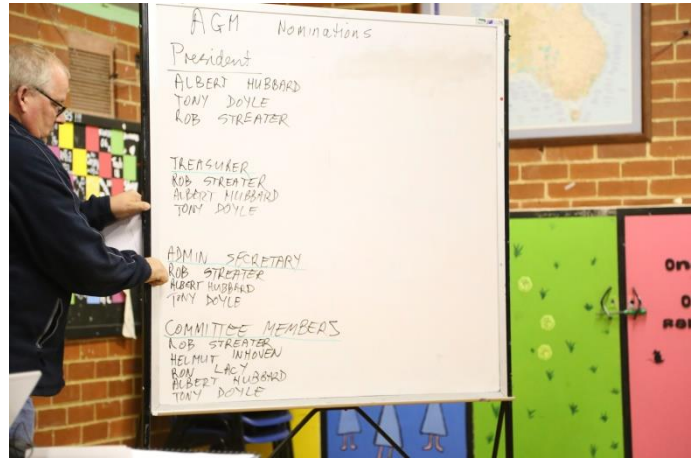 AGM Nominations
President
ALBERT HUBBARD
TONY DOYLE
ROB STREATER
TREASURER
ROB STREATER
ALBERT HUBBARD
TONY DOYLE
ADMIN SECRETARY
ROB STREATER
ALBERT HUBBARD
TONY DOYLE
COMMITTEE MEMBERS
ROB STREATER
HELMUT INHOVEN
RON LACY
ALBERT HUBBARD
TONY DOYLE